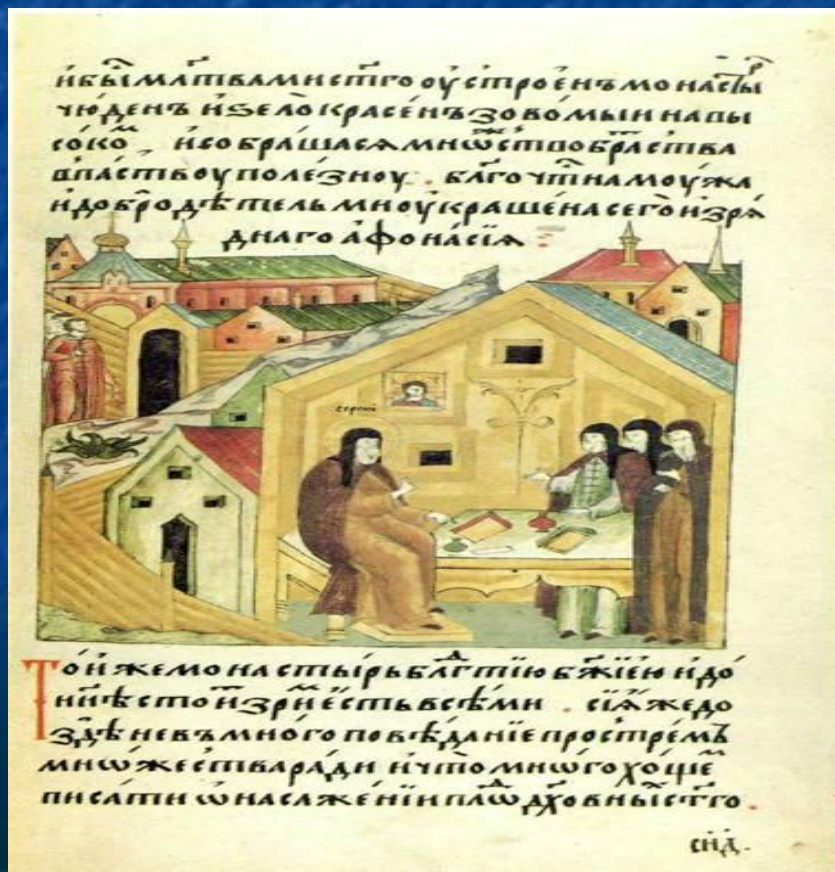 и҆бы́ мл҃твами ст҃го оу҆строе́нъ монастꙑ́рь
чю́денъ и҆ ѕело̀ красе́нъ зово́мыи на вы
со́ко и҆ собра́шасѧ мно́жество бра́тства
в па́ству поле́зноу . бл҃гочⷭ҇тна моу́жа
и҆ добродѣ́тельми оу҆кра́шена сего̀ и҆зрѧ́
днаго а҆фона́сїа
серги́
То́и же монасты́рь бл҃года́тїю бж҃їею и҆ до
нн҃ѣ стои́т зри́м є҆сть все́ми . сїѧ̑ же до
здѣ̀ не въ мно́го повѣ́данїе простре́мъ
мно́жества ра́ди и҆ что̀ мно́го хо́щеⷨ
писа́ти ѡ҆ насаже́нїи плѡд дх҃овныⷯ ст҃го .
сн҃д .